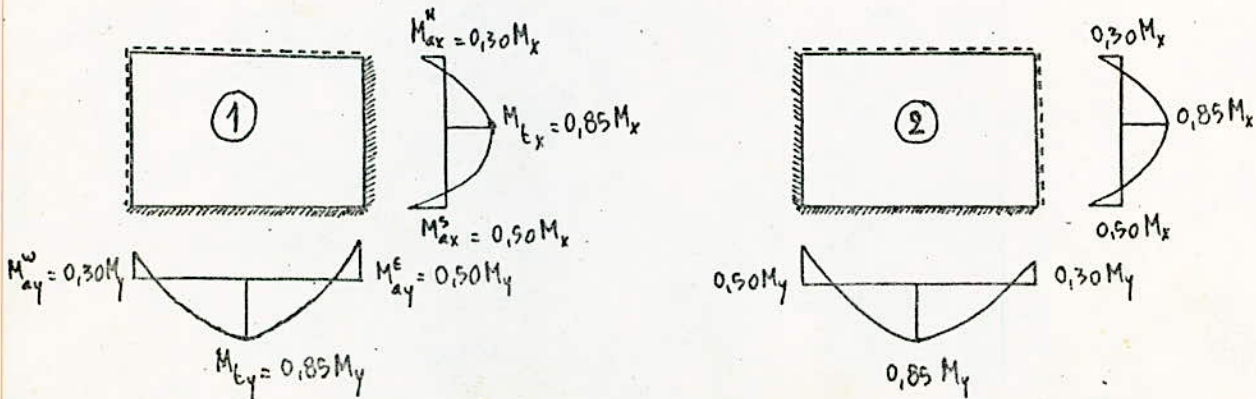 M_ax^N = 0,30 M_x
①
M_tx = 0,85 M_x
M_ax^S = 0,50 M_x
M_ay^W = 0,30 M_y
M_ay^E = 0,50 M_y
M_ty = 0,85 M_y
0,30 M_x
②
0,85 M_x
0,50 M_x
0,50 M_y
0,30 M_y
0,85 M_y